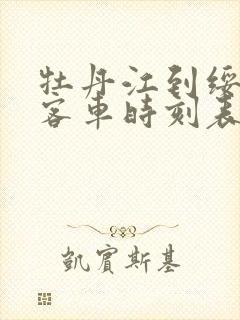 牡丹江到绥
客車時刻表
凱賓斯基